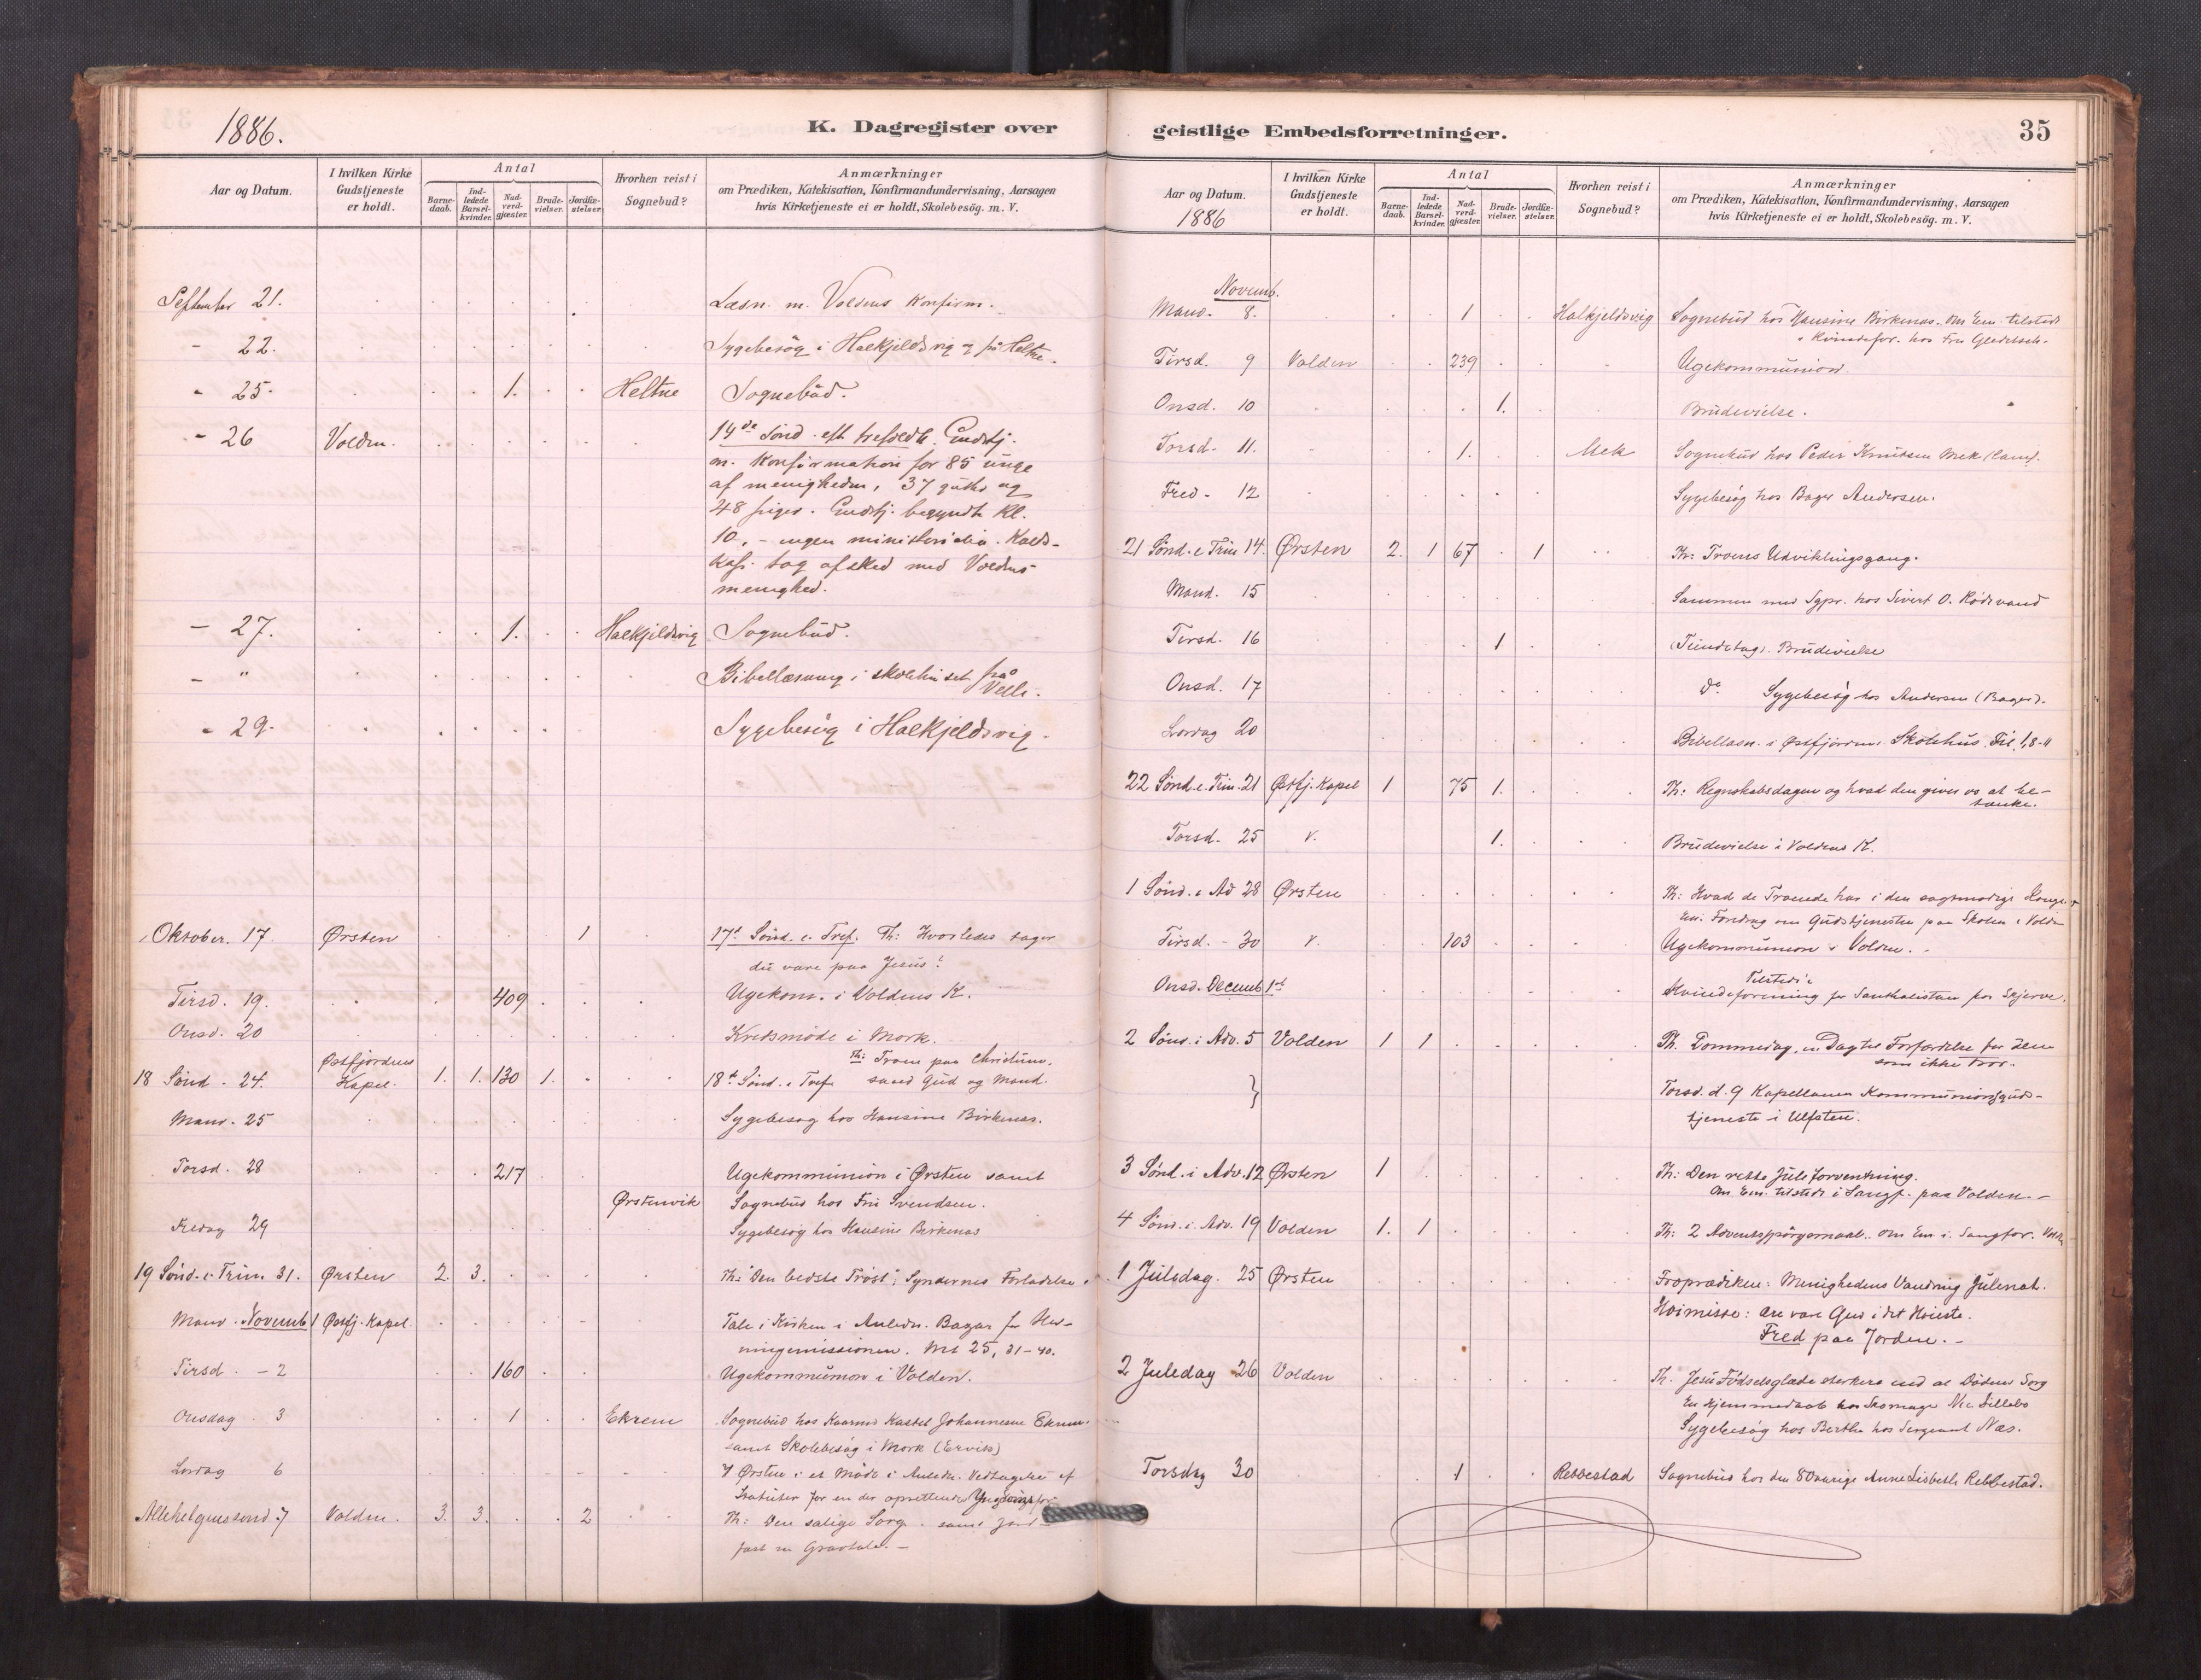 1886.
K. Dagregister over
Aar og Datum.
I hvilken Kirke Gudstjeneste er holdt.
Antal
Barnedaab.
Indledede Barselkvinder.
Nadverdgjæster.
Brudevielser.
Jordfæstelser.
Hvorhen reist i Sognebud?
Anmærkninger
om Prædiken, Katekisation, Konfirmandundervisning, Aarsagen
hvis Kirketjeneste ei er holdt, Skolebesög. m. V.
September 21. Læsn. m. Voldens Konfirm.
- 22. Sygebesög i Halkjeldsvig og på Heltne.
- 25. 1. Heltne Sognebud.
- 26 Volden. 14de Sönd. eft trefoldh. Gudstj.
m. Konfirmation for 85 unge
af menigheden, 37 gutter og
48 piger. Gudstj. begyndte Kl.
10. - ingen ministerialia. Kalds-
kap. tog afsked med Voldens
menighed.
- 27. 1. Halkjeldsvig Sognebud.
- " Bibellæsning i skolehuset på
Velle.
- 29. Sygebesög i Halkjeldsvig.
Oktober. 17 Ørsten 1 17de Sönd. e. Tref. Th: Hvorledes tager
du vare paa Jesus?
Tirsd. 19. 409 Ugekom. i Voldens K.
Onsd. 20 Kredsmöde i Mork.
18 Sönd. 24. Østfjordens Kapel. 1. 1. 130 1. Th: Troen paa Christum,
18de Sönd. e Tref. sand Gud og Mand.
Mand. 25 Sygebesøg hos Hansine Birkenes.
Torsd. 28 217 Ugekommunion i Ørsten samt
Ørstenvik Sognebud hos Fru Svendsen.
Fredag 29 Sygebesög hos Hansine Birkenes
19 Sönd. e. Trin. 31. Ørsten 2. 3. Th: "Den bedste Tröst", Syndernes Forladelse.
Mand. Novemb 1 Østfj. Kapel. Tale i Kirken i Anledn. Bazar for Hed-
ningemissionen. Mt 25, 31-40.
Tirsd. - 2 160 Ugekommunion i Volden.
Onsdag 3 1 Ekrem Sognebud hos Johannesen Ekrem.
samt Skolebesög i Mork
Lördag 6 I Ørsten i et Möde i Anledn. Vedtagelse af
Statuter for en der oprettende
Allehelgenssönd. 7 Volden. 3. 3. 2 Th: Den salige Sorg. samt Jord-
fæst m Gravtale. -
geistlige Embedsforretninger.
35
Aar og Datum.
1886
I hvilken Kirke Gudstjeneste er holdt.
Antal
Barnedaab.
Indledede Barselkvinder.
Nadverdgjæster.
Brudevielser.
Jordfæstelser.
Hvorhen reist i Sognebud?
Anmærkninger
om Prædiken, Katekisation, Konfirmandundervisning, Aarsagen
hvis Kirketjeneste ei er holdt, Skolebesög. m. V.
Novemb.
Mand. 8. 1 Halkjeldsvig Sognebud hos Hansine Birkenes. Om Em. tilstede
i Kvindefor. hos Fru
Tirsd. 9 Volden 239 Ugekommunion
Onsd. 10 1. Brudevielse.
Torsd. 11. 1. Mek Sognebud hos Peder Knutsen Mek
Fred. 12 Sygebesög hos Bager Andersen.
21 Sönd. e Trin 14. Ørsten 2. 1 67 1 Th: Troens Udviklingsgang.
Mand. 15 Sammen med Sgpr. hos Sivert O. Rödsvand
Tirsd. 16 1 (Tiendetag). Brudevielse
Onsd. 17 Do Sygebesög hos Andersen (Bager).
Lördag 20 Bibellæsn. i Østfjordens Skolehus. Fil. 1, 8-11
22 Sönd. e. Trin. 21 Østfj. Kapel 1 75 1. Th: Regnskabsdagen og hvad den giver os at be-
tænke.
Torsd. 25 V. 1. Brudevielse i Voldens K.
1 Sönd. i Ad 28 Ørsten Th: Hvad de Troende har i den sagtmodige Konge
Em: Foredrag om Gudstjenesten paa Skolen i Volden
Tirsd. - 30 V. 103 Ugekommunion i Volden.
Onsd. Decemb 1st Tilstede i
Kvindeforening for Santhalistan hos Skjerve.
2 Sönd. i Adv. 5 Volden 1 1 Th. Dommedag, en Dag til Forfærdelse for dem
som ikke tror.
} Torsd. d. 9 Kapellanen Kommunionsguds-
tjeneste i Ulfsten.
3 Sönd. i Adv. 12 Ørsten 1 Th: Den rette Juleforventning.
Om Em. tilstede i Sangf. paa Volden. -
4 Sönd. i. Adv. 19 Volden 1. 1 Th: 2 Adventsspörgsmaal. Om Em i Sangfor. Volden
1 Juledag. 25 Ørsten Froprædiken: Menighedens Vandring Julenat.
Höimisse: Ære være Gud i det Höieste.
Fred paa Jorden. -
2 Juledag 26 Volden Th. Jesu Födselsglæde sterkere end al Dödens Sorg
En Hjemmedaab hos Skomager
Sygebesög hos Berthe hos Sergeant Næs.
Torsdag 30 1 Rebbestad Sognebud hos den 80aarige Anne Lisbeth Rebbestad.